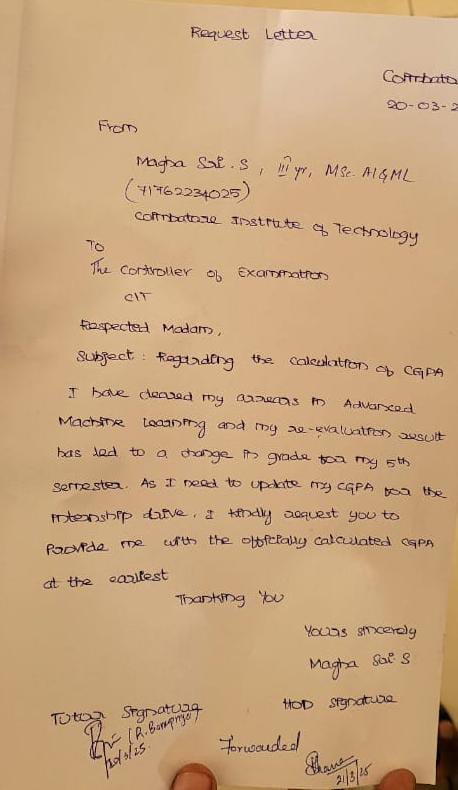 Request Letter
Coimbato
20-03-2
From
Magha Sai. S, III yr, MSc. AI&ML
(71762234025)
Coimbatore Institute of Technology
To
The Controller of Examination
CIT
Respected Madam,
Subject: Regarding the calculation of CGPA
I have cleared my arrears in Advanced
Machine Learning and my re-evaluation result
has led to a change in grade for my 5th
semester. As I need to update my CGPA for the
internship drive, I kindly request you to
Provide me with the officially calculated CGPA
at the earliest
Thanking You
Yours sincerely
Magha Sai. S
Tutor Signature
HOD Signature
20/3/25
Forwarded
21/3/25